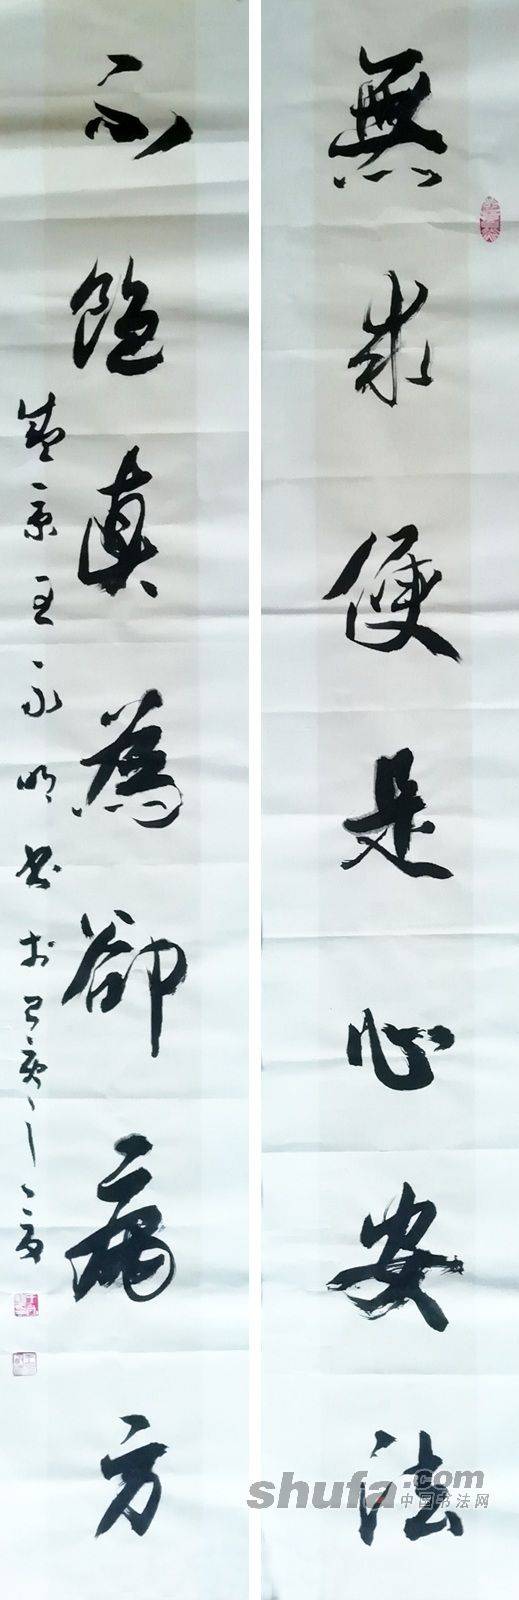 無求便是心安法
不飽真為卻病方
王永明书於己亥
shufa.com
中国书法网